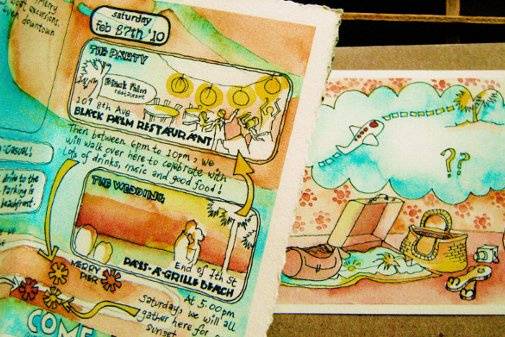 excursions.
downtown
saturday
feb 27th '10
THE PARTY
Black Palm
restaurant
109 8th Ave
BLACK PALM RESTAURANT
Then between 6pm to 10pm, we
will walk over here to celebrate with
Lots of drinks, music and good food!
CASUAL!
to the
Parking is
beachfront.
THE WEDDING
End of 7th St
PASS·A·GRILLE BEACH
MERRY
PIER
At 5:00pm
Saturday, we will all
gather here for a
sunset
COME
??